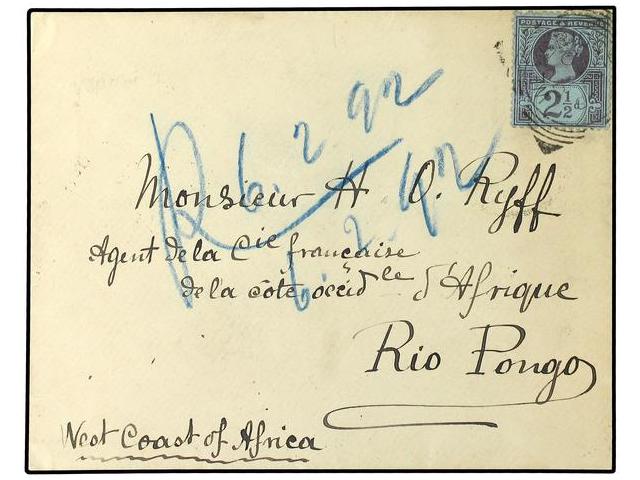 POSTAGE & REVENUE
2½d
R 6. 2. 92
Monsieur H. O. Ryff
6. 2. 92
Agent de la Cie française
de la côte occidle d'Afrique
Rio Pongo
West Coast of Africa